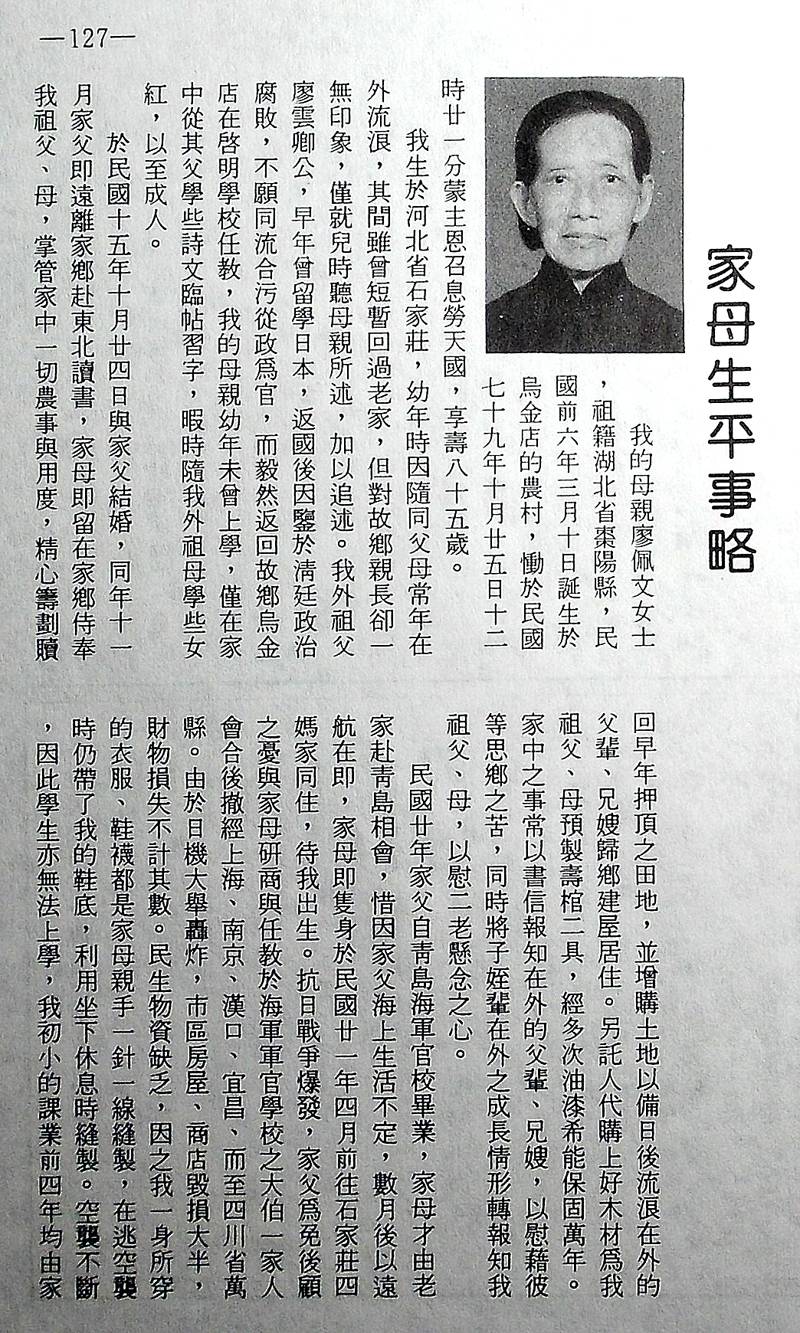 —127—
家母生平事略
我的母親廖佩文女士
，祖籍湖北省棗陽縣，民
國前六年三月十日誕生於
烏金店的農村，慟於民國
七十九年十月廿五日十二
時廿一分蒙主恩召息勞天國，享壽八十五歲。
我生於河北省石家莊，幼年時因隨同父母常年在
外流浪，其間雖曾短暫回過老家，但對故鄉親長卻一
無印象，僅就兒時聽母親所述，加以追述。我外祖父
廖雲卿公，早年曾留學日本，返國後因鑒於淸廷政治
腐敗，不願同流合污從政爲官，而毅然返回故鄉烏金
店在啓明學校任教，我的母親幼年未曾上學，僅在家
中從其父學些詩文臨帖習字，暇時隨我外祖母學些女
紅，以至成人。
於民國十五年十月廿四日與家父結婚，同年十一
月家父即遠離家鄉赴東北讀書，家母即留在家鄉侍奉
我祖父、母，掌管家中一切農事與用度，精心籌劃贖
回早年押頂之田地，並增購土地以備日後流浪在外的
父輩、兄嫂歸鄉建屋居住。另託人代購上好木材爲我
祖父、母預製壽棺二具，經多次油漆希能保固萬年。
家中之事常以書信報知在外的父輩、兄嫂，以慰藉彼
等思鄉之苦，同時將子姪輩在外之成長情形轉報知我
祖父、母，以慰二老懸念之心。
民國廿年家父自靑島海軍官校畢業，家母才由老
家赴靑島相會，惜因家父海上生活不定，數月後以遠
航在即，家母即隻身於民國廿一年四月前往石家莊四
媽家同住，待我出生。抗日戰爭爆發，家父爲免後顧
之憂與家母研商與任教於海軍軍官學校之大伯一家人
會合後撤經上海、南京、漢口、宜昌、而至四川省萬
縣。由於日機大舉轟炸，市區房屋、商店毀損大半，
財物損失不計其數。民生物資缺乏，因之我一身所穿
的衣服、鞋襪都是家母親手一針一線縫製，在逃空襲
時仍帶了我的鞋底，利用坐下休息時縫製。空襲不斷
，因此學生亦無法上學，我初小的課業前四年均由家